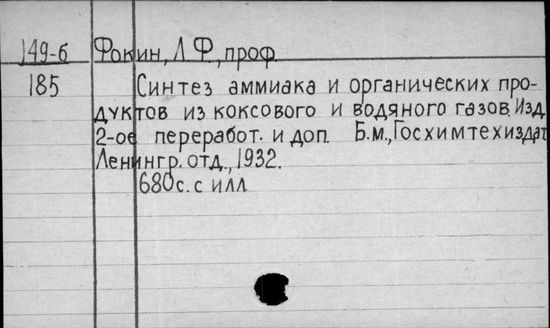 149-б Фокин, Л Ф, проф.
185 Синтез аммиака и органических про-
дуктов из коксового и водяного газов. Изд.
2-ое переработ. и доп. Б.м., Госхимтехиздат
Ленингр. отд., 1932.
680с. с илл